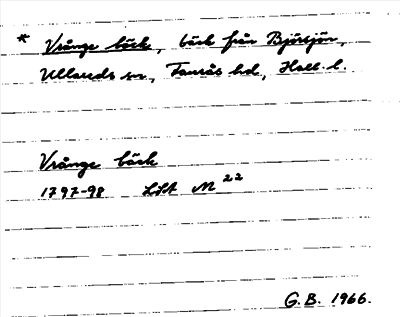 * Vrånge bäck, bäck från Björsjön,
Ullareds sn., Faurås hd., Hall. l.
Vrånge bäck
1797-98 LSA M 22
G. B. 1966.